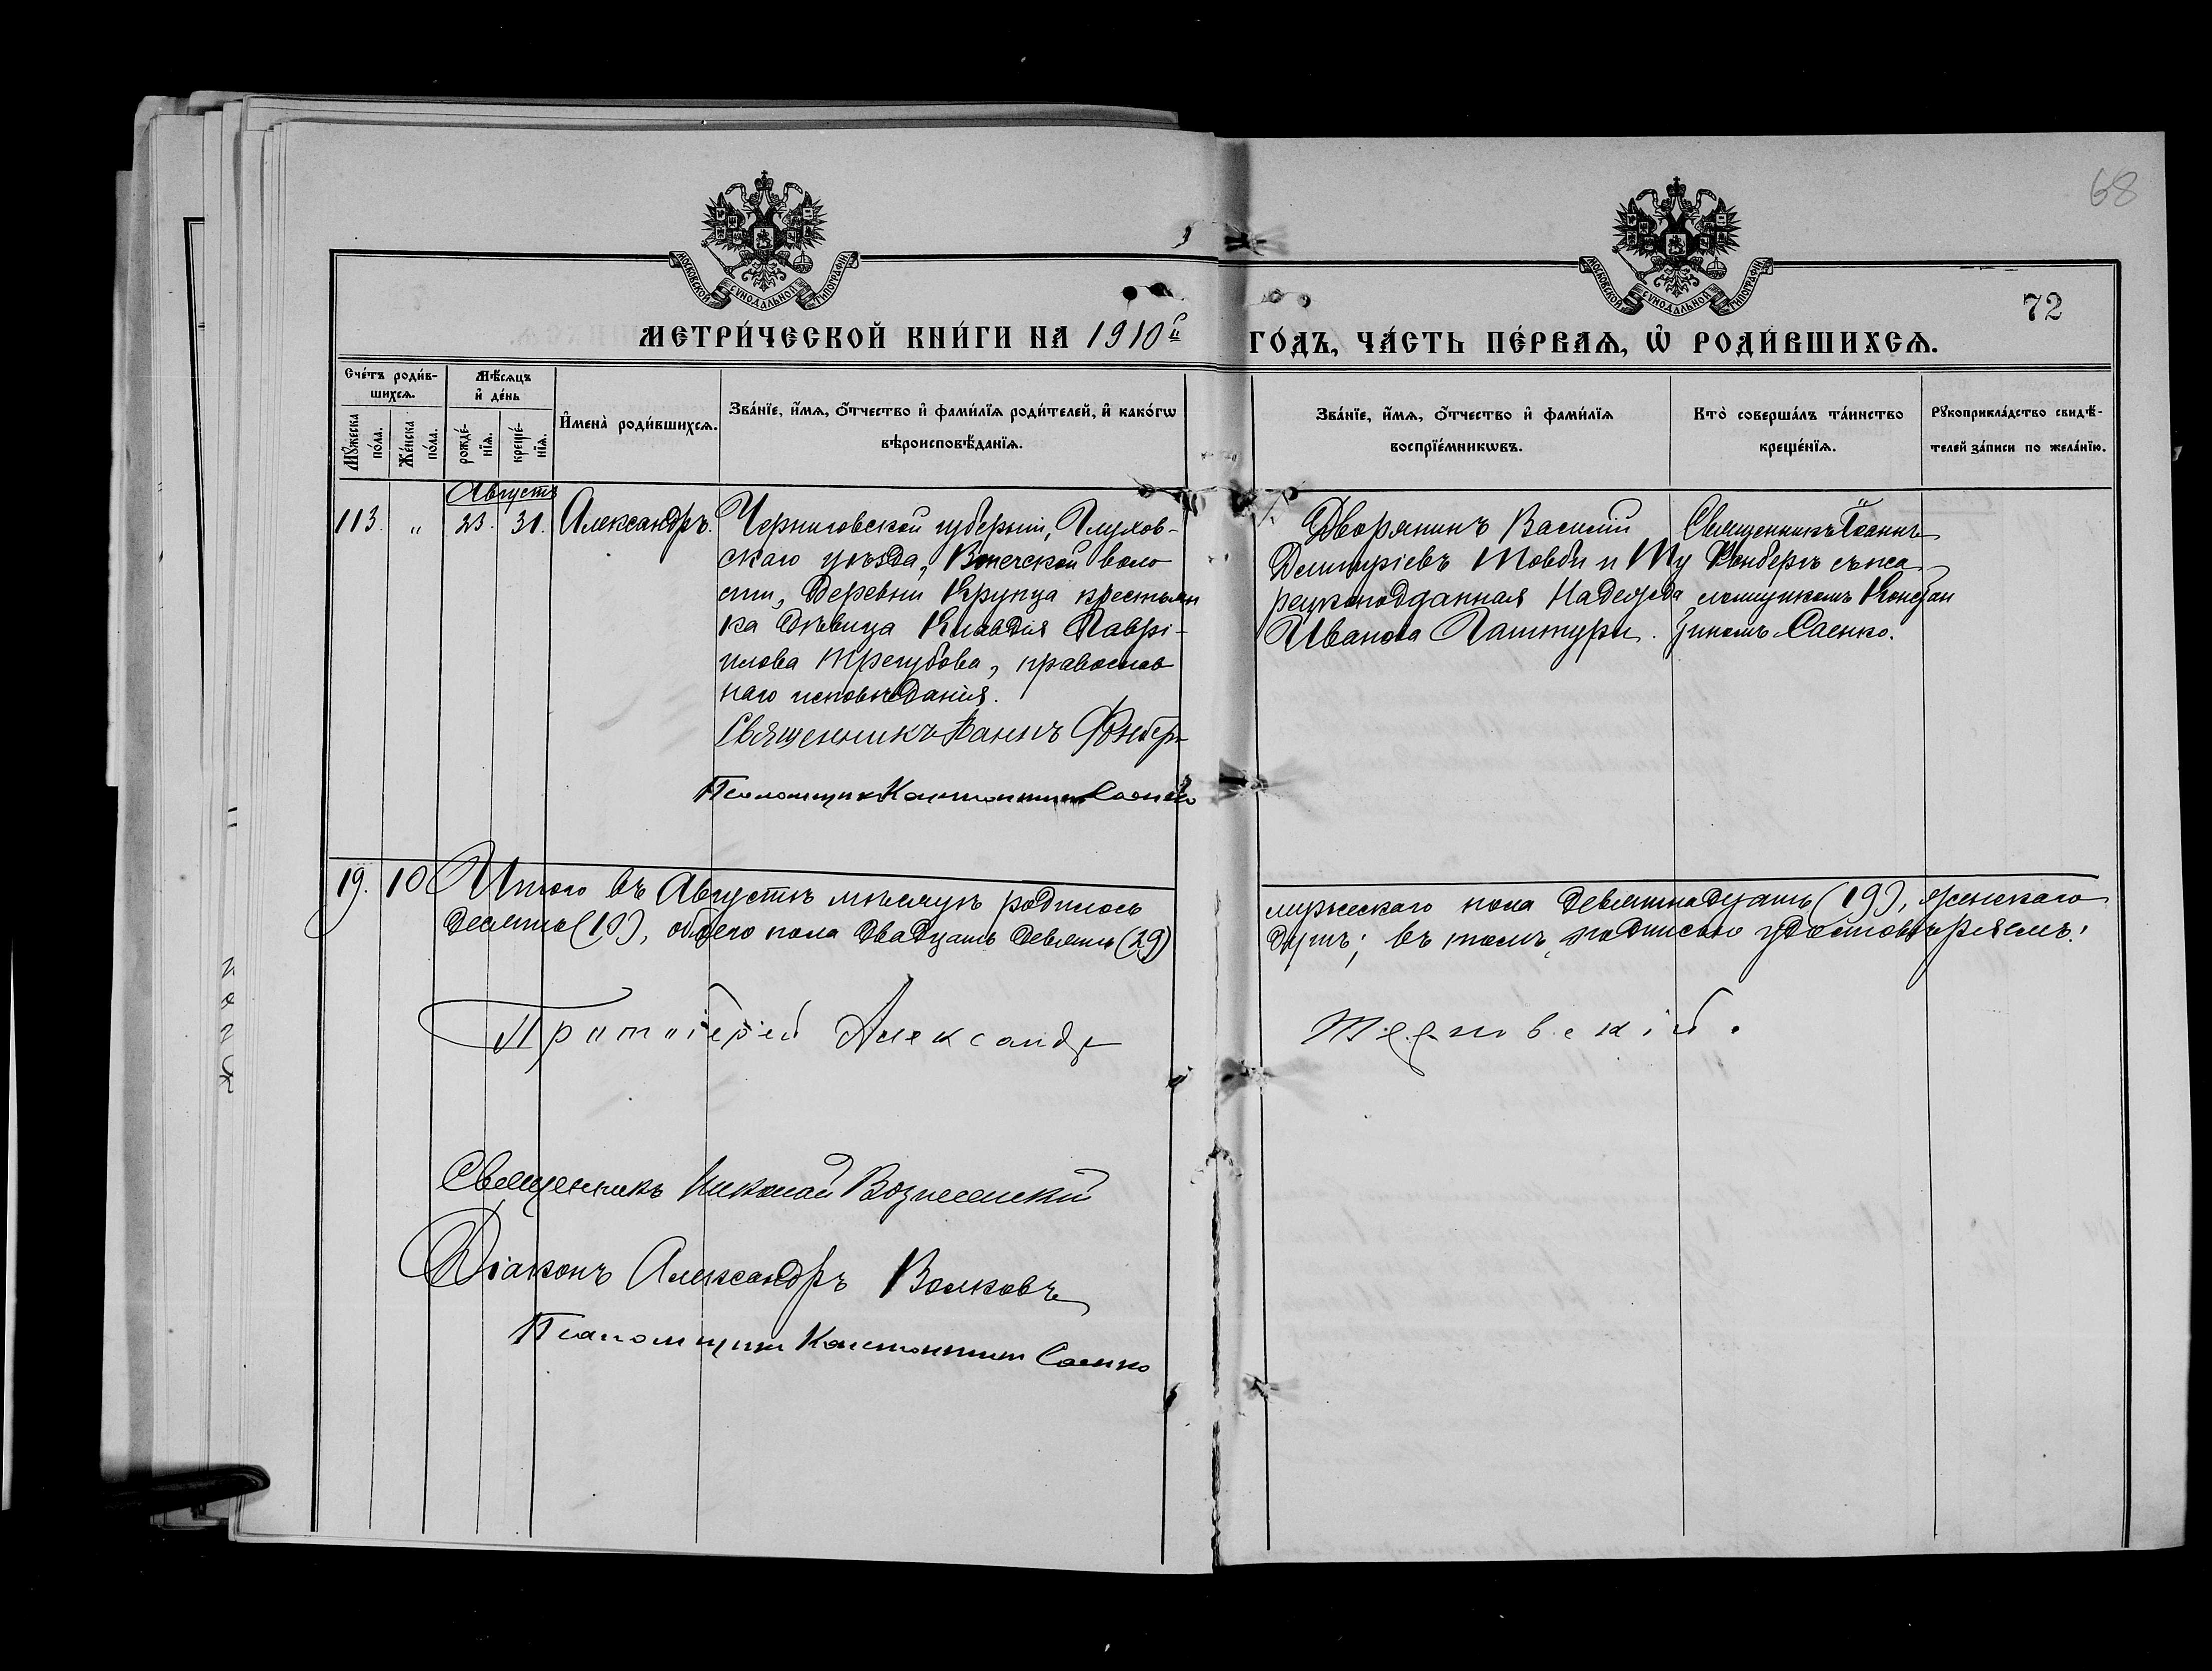 68
МОСКОВСКОЙ СѴНОДАЛЬНОЙ ТИПОГРАФІИ
МОСКОВСКОЙ СѴНОДАЛЬНОЙ ТИПОГРАФІИ
72
МЕТРИ́ЧЕСКОЙ КНИ́ГИ НА 1910й ГО́ДЪ, ЧА́СТЬ ПЕ́РВАѦ, Ѡ҆ РОДИ́ВШИХСѦ.
Сче́тъ роди́в-
шихсѧ.
Мꙋ́жеска по́ла.
Же́нска по́ла.
Мѣ́сѧцъ
и҆ де́нь
рожде́-
нїѧ.
креще́-
нїѧ.
И҆мена̀ роди́вшихсѧ.
Зва́нїе, и҆́мѧ, ѻ҆́тчество и҆ фами́лїѧ роди́телей, и҆ како́гѡ
вѣроисповѣ́данїѧ.
Зва́нїе, и҆́мѧ, ѻ҆́тчество и҆ фами́лїѧ
воспрїе́мникѡвъ.
Кто̀ соверша́лъ та́инство
креще́нїѧ.
Рꙋкоприкла́дство свидѣ́-
телей за́писи по жела́нїю.
Августъ
113. „ 23. 31. Александръ.
Черниговской губерніи, Глухов-
скаго уѣзда, волo
сти, деревни Крупца крестьян
ка дѣвица Клавдія Гаврі-
илова Трегубова, православ
наго исповѣданія.
Священникъ Іоаннъ
Псаломщикъ Константинъ Саенко
Дворянинъ Василій
Димитріевъ Товби и Ту
рецкоподданная Надежда
Иванова
Священникъ Іоаннъ
съ пса
ломщикомъ Констан
тиномъ Саенко.
19. 10 Итого въ Августѣ мѣсяцѣ родилось мужескаго пола девятнадцать (19), женскаго
десять (10), обоего пола двадцать девять (29) душъ; въ томъ подписью удостовѣряемъ:
Протоіерей Александръ Терновскій.
Священникъ Николай Вознесенскій
Діаконъ Александръ Волковъ
Псаломщикъ Константинъ Саенко